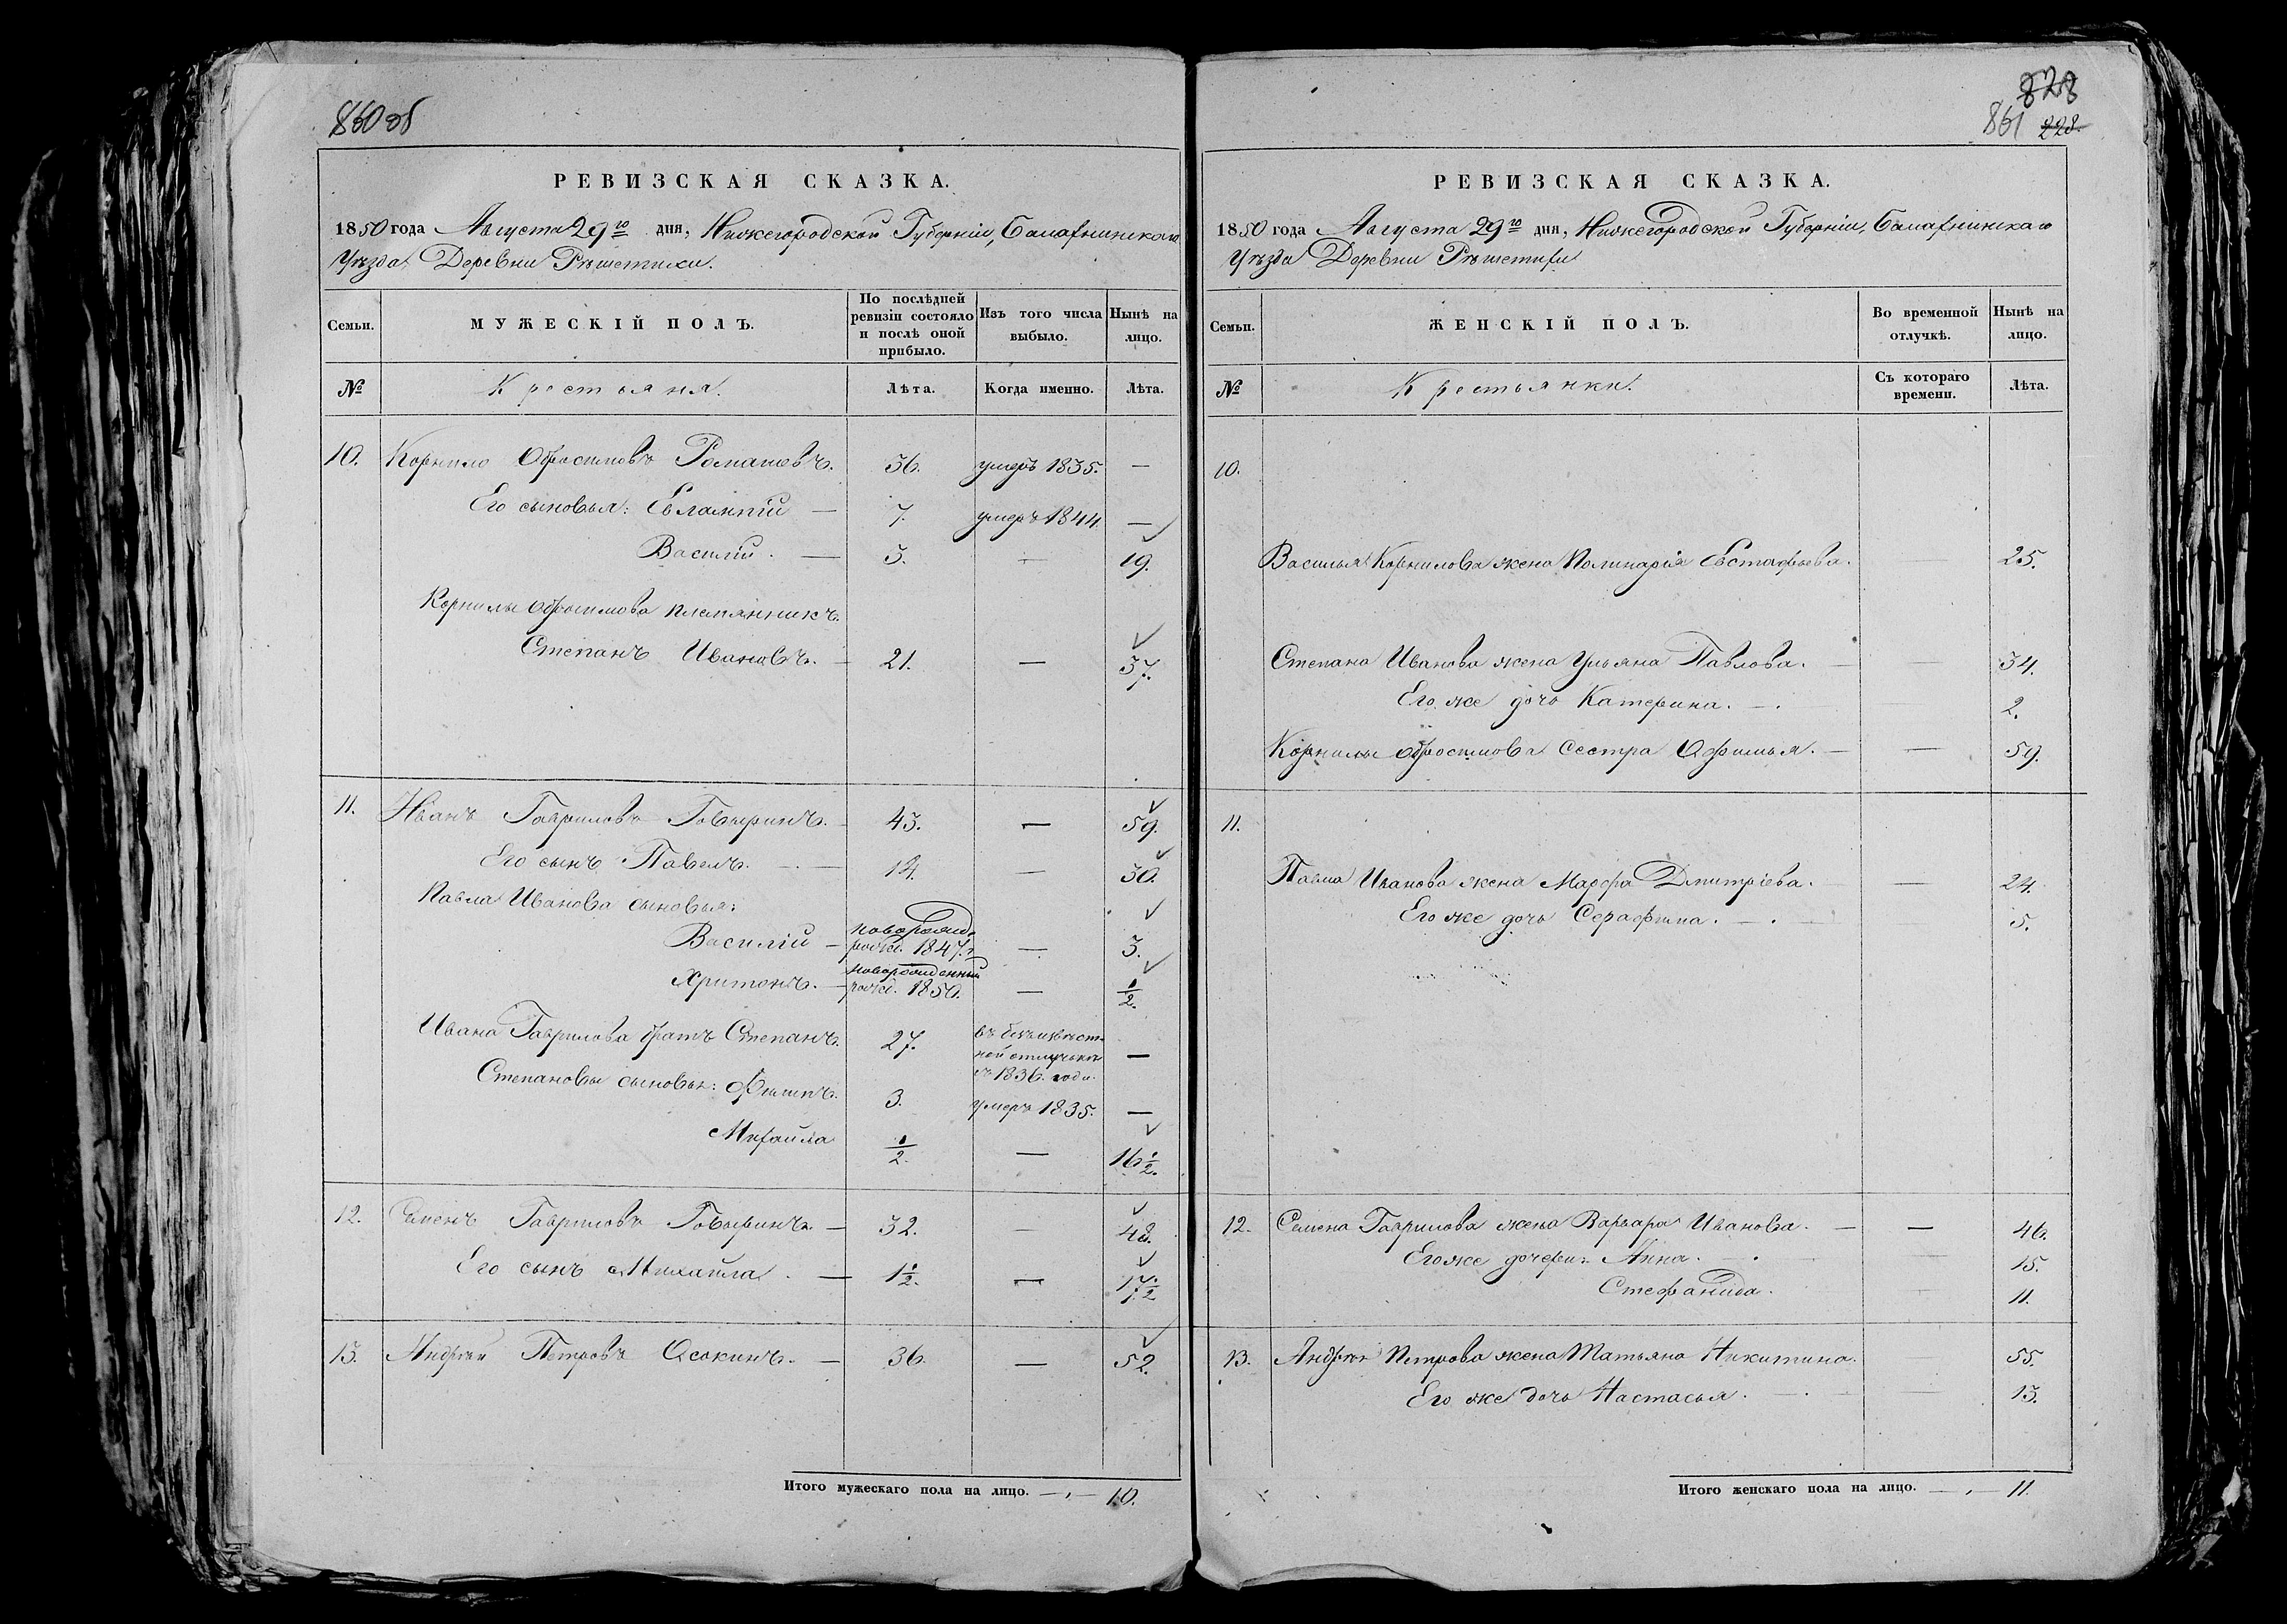 860 об
РЕВИЗСКАЯ СКАЗКА.
1850 года Августа 29го дня, Нижегородской Губерніи, Балахнинскаго
Уѣзда Деревни Рѣшетихи.
Семьи.
МУЖЕСКІЙ ПОЛЪ.
По послѣдней ревизіи состояло и послѣ оной прибыло.
Изъ того числа выбыло.
Нынѣ на лицо.
№
Крестьяня.
Лѣта.
Когда именно.
Лѣта.
10. Корнило Офросимовъ Романовъ. 36. умеръ 1835. —
Его сыновья: Евлампій — 7. умеръ 1844. —
Василій. — 3. — 19.
Корнилы Офросимова племянникъ
Степанъ Ивановъ. — 21. — 37.
11. Иванъ Гавриловъ Говыринъ. — 43. — 59.
Его сынъ Павелъ. — 14. — 30.
Павла Иванова сыновья:
Василій — новорожд. рожд. 1847. г. — 3.
Харитонъ. — новорожденный рожд. 1850. — 1/2.
Ивана Гаврилова братъ Степанъ. 27. въ безъизвѣстной отлучкѣ съ 1836. года. —
Степановы сыновья: Филипъ. 3. умеръ 1835. —
Михайла 1/2. — 16 1/2.
12. Семенъ Гавриловъ Говыринъ. — 32. — 48.
Его сынъ Михайла. — 1 1/2. — 17 1/2
13. Андрей Петровъ Осокинъ. — 36. — 52.
Итого мужескаго пола на лицо. — 10.
828
861 228.
РЕВИЗСКАЯ СКАЗКА.
1850 года Августа 29го дня, Нижегородской Губерніи, Балахнинскаго
Уѣзда Деревни Рѣшетихи
Семьи.
ЖЕНСКІЙ ПОЛЪ.
Во временной отлучкѣ.
Нынѣ на лицо.
№
Крестьянки.
Съ котораго времени.
Лѣта.
10.
Василья Корнилова жена Полинарія Евстафьева. — 25.
Степана Иванова жена Ульяна Павлова. — 34.
Его же дочь Катерина. — 2.
Корнилы Офросимова сестра Офимья. — 59.
11.
Павла Иванова жена Марфа Дмитріева. — 24.
Его же дочь Серафима. — 5.
12. Семена Гаврилова жена Варвара Иванова. — 46.
Его же дочери: Анна. — 15.
Стефанида. 11.
13. Андрея Петрова жена Татьяна Никитина. 55.
Его же дочь Настасья. — 13.
Итого женскаго пола на лицо. — 11.